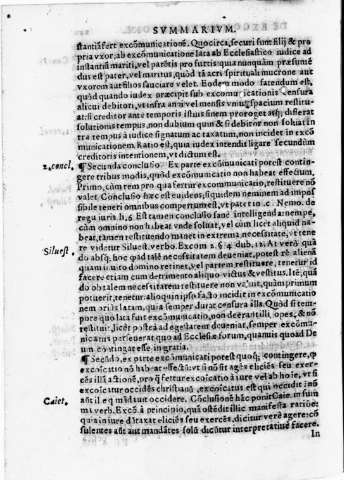 SVMMARIVM.
stantia fert excōmunicationē. Quocirca, securi sunt filij & pro
pria vxor, ab excōmunicatione lata ab Ecclesiastico iudice ad
instantiā mariti, vel parētis pro furtis quia nunquam præsumē
dus est pater, vel maritus, quòd tā acri spirituali mucrone aut
vxorem aut filios sauciare velet. Eodē modo
quòd quando iudex præcipit sub excōmunicationis censura
alicui debitori, vt infra anni vel mensis vnius spacium restituat
si creditor ante temporis istius finem proroget
solutionis tempus, non dubium quin & si debitor non soluat in
tra tempus à iudice signatum ac taxatum, non incidet in excō
municationem. Ratio est, quia iudex intendit ligare secundum
creditoris intentionem, vt dictum est.
2. concl. ¶ Secunda conclusio. Ex parte excōmunicati potest contin-
gere tribus modis, quòd excōmunicatio non habeat effectum.
Primo, cùm rem pro qua fertur excōmunicatio, restituere nō
valet. Conclusio hæc est euidens, siquidem neminem ad impos
sibile teneri omnibus compertum est, vt patet in c. Nemo. de
regu iuris li. 6. Est tamen conclusio sane intelligenda nempe,
cùm omnino non habet vnde soluat, vel cum licet aliquid ha-
beat, tamen restituendo manet in extrema necessitate, vt tene
Siluest. re videtur Siluest. verbo. Excom 2. §. 4 dub. 12. At verò quā
do absq; hoc quòd talē necessitatem deueniat, potest rē alienā
quam inuito domino retinet, vel partem restituere, tenetur id
facere etiam cum detrimento alicuius victus & vestitus. Itē, quā
do ob talem necessitatem restituere non valuit, quàm primum
potuerit, tenetur. alioquin ipso facto incidit in excōmunicatio
nem prius latam, quia semper durat censura illa. Quod si tem-
pore quo lata fuit excōmunicatio, non deerant illi opes, & nō
restituit, licet posteà ad egestatem deueniat, semper excōmu-
nicatus perseuerat quo ad Ecclesiæ forum, quamuis quoad Deum
contingat esse in gratia.
¶ Secūdo, ex parte excōmunicati potest quoq; contingere, ꝙ
excōicatio nō habeat effectū, vt si nō sit aghēs eliciēs seu exer-
cēs illā actionē, pro q̄ fertur excoīcatio à iure vel ab hoīe, vt si
excoīcatur occidēs christianū, excoīcatus est qui occidit nō
Caiet. aūt ille q̄ mādat occidere. Cōclusionē hāc ponit Caie. in sum
ma verb. Excō. à principio, quā ostēdit illic manifesta ratiōe:
quia in iure dūtaxat eliciēs seu exercēs, dicitur verè agere: cō
sulentes aūt aut mandātes solū dicūtur interpretatiuè facere.
In